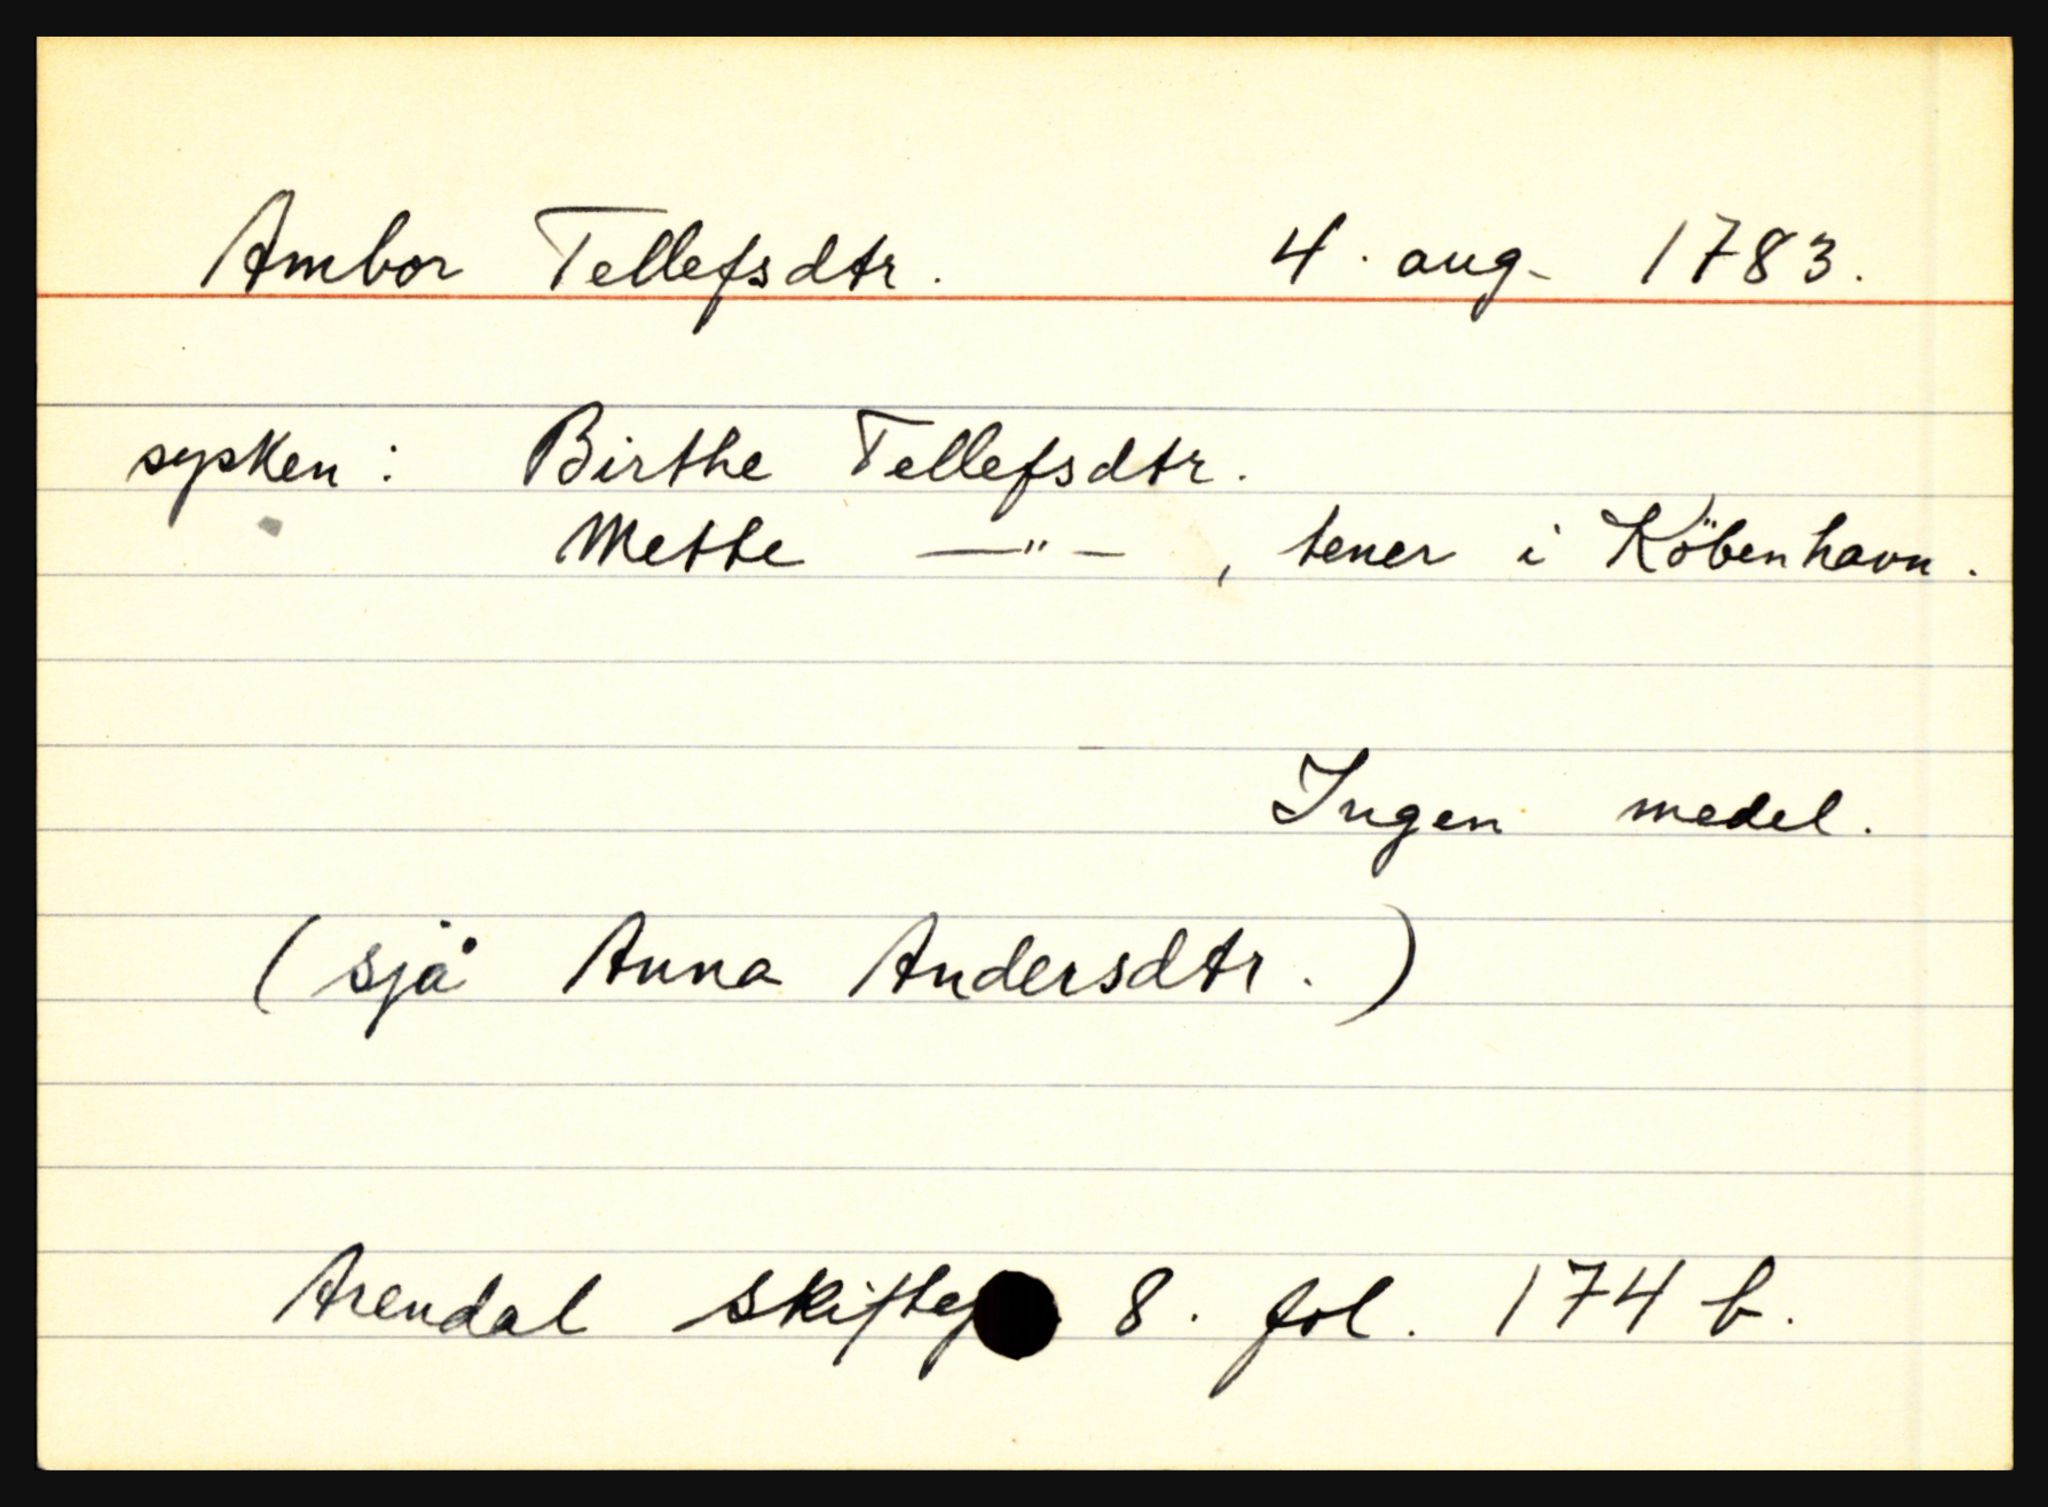 Ambor Tellefsdtr. 4. aug. 1783.
sysken: Birthe Tellefsdtr.
Methe —"— , tener i Köbenhavn.
Ingen medel.
(sjå Anna Andersdtr.)
Arendal 8. fol. 174 b.